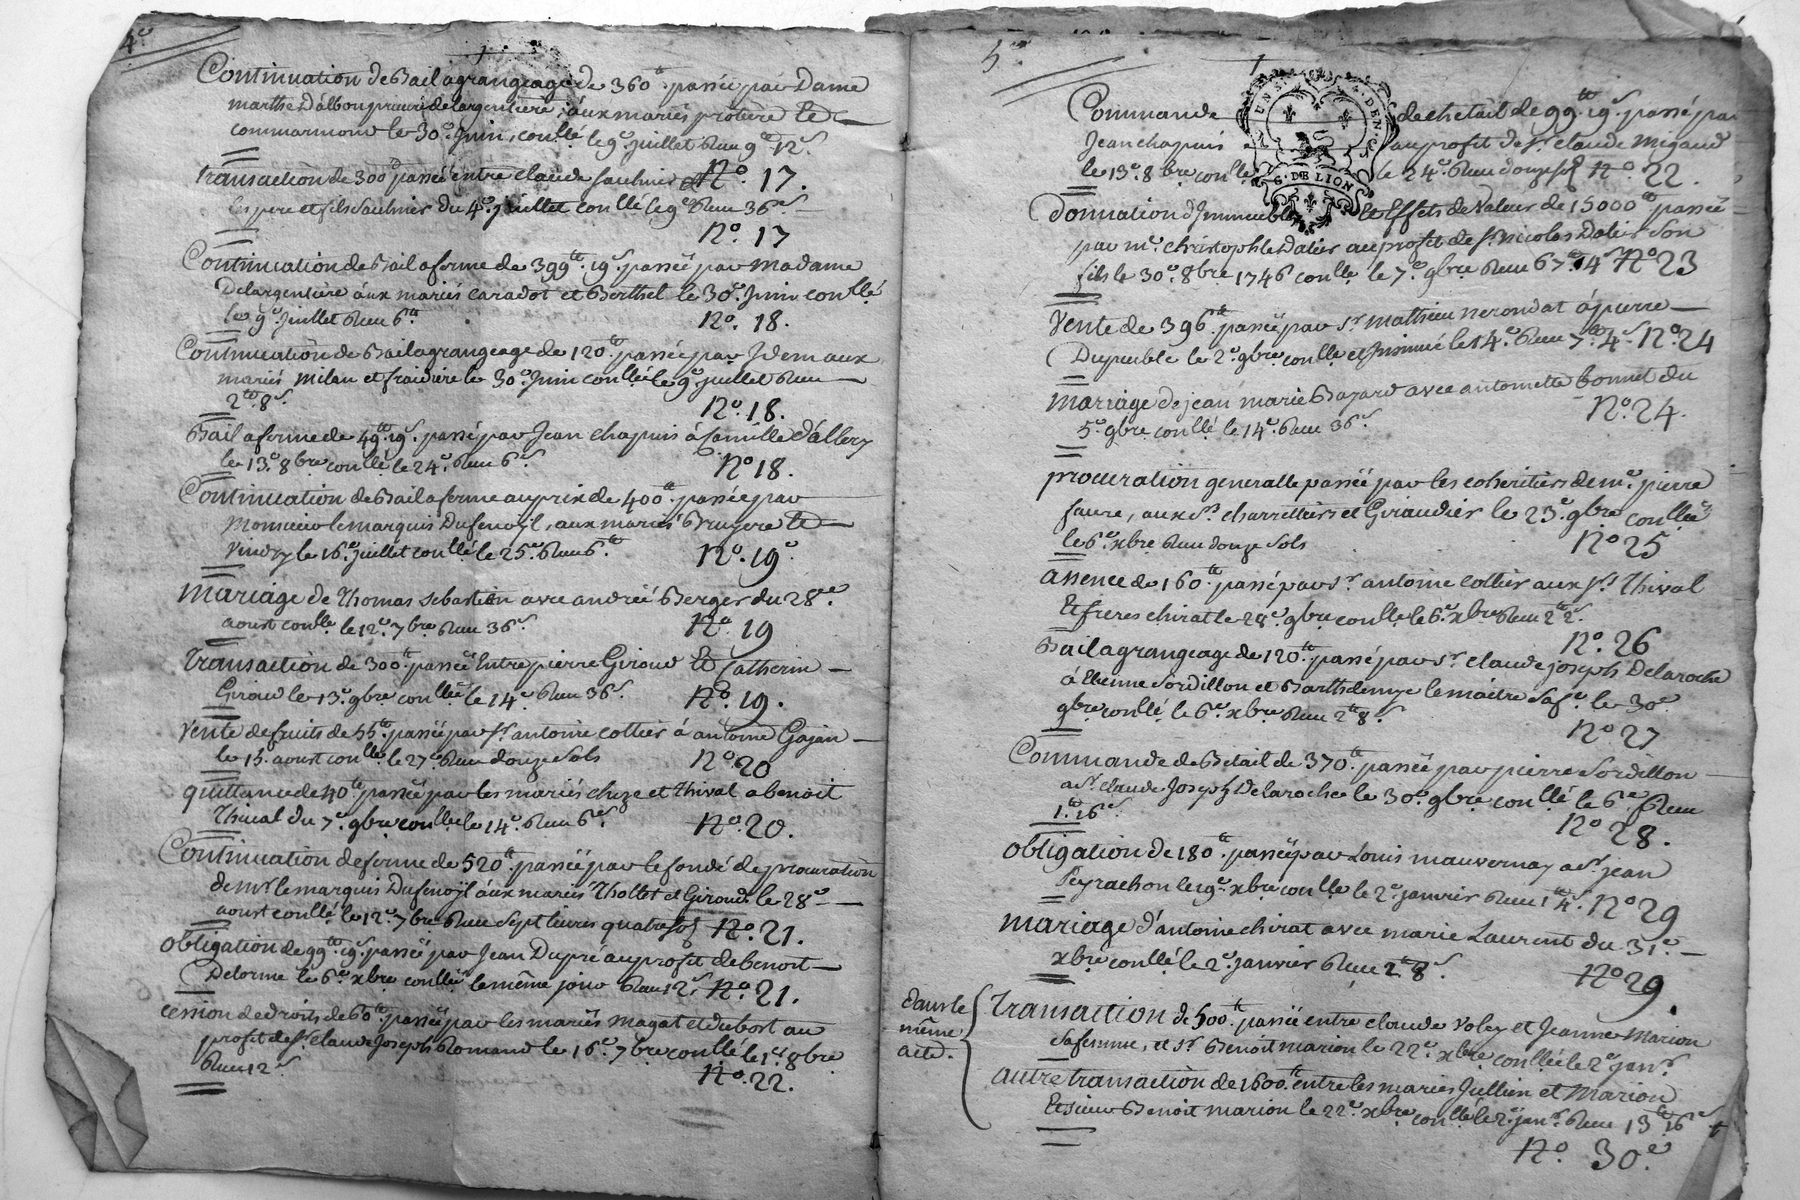 4e
Continuation de Bail a grangeage de 360tt passée par Dame
marthe D'albon prieure de largentiere, aux mariés protiere et
commarmond le 30e Juin, conllé le 9e juillet Reçu 9tt 12s
Transaction de 300tt passée entre claude saulnier No. 17.
les pere et fils saulnier du 4e juillet conllé le 9e Reçu 36s
No. 17
Continuation de Bail a ferme de 399tt 19s passée par Madame
Delargentiere aux mariés caradot et Berthel le 30e Juin conllé
le 9e Juillet Reçu 6tt No. 18.
Continuation de Bail a grangeage de 120tt passée par Idem aux
mariés milan et le 30e Juin conllé le 9e juillet Reçu
2tt 8s No. 18.
Bail a ferme de 49tt 19s passé par Jean chapuis à camille d'allery
le 13e 8bre conllé le 24e Reçu 6s No 18.
Continuation de Bail a ferme au prix de 400tt passée par
Monsieur le marquis Dufenoyl, aux mariés Bruyere et
le 16e juillet conllé le 25e Reçu 6tt No. 19e
Mariage de Thomas Sebastien avec andreé Berger du 28e
aoust conllé le 12e 7bre Reçu 36s No 19
Transaction de 300tt passée Entre pierre Giroud Et Catherin
Giroud le 13e 9bre conllée le 14e Reçu 36s No. 19.
Vente de fruits de 55tt passée par sr antoine cottier à antoine Gajan
le 15 aoust conllé le 27e Reçu douze Sols No 20
quittance de 40tt passée par les mariés cheze et Thival a benoit
Thival du 7e 9bre conllé le 14e Reçu 6s No. 20.
Continuation de ferme de 520tt passée par le fondé de procuration
de mr le marquis Dufenoyl aux mariés Thollet et Giroud le 28e
aoust conllé le 12e 7bre Reçu Sept livres quatre sols No. 21.
Obligation de 99tt 19s passée par Jean Dupré au profit de benoit
Delorme le 6e xbre conllée le même jour Reçu 12s No. 21.
cession de droits de 60tt passée par les mariés magat et dubost au
profit de sr claude Joseph Romand le 16e 7bre conllé le 1er 8bre
Reçu 12s No. 22.
5e
Commande de chetail de 99tt 19s passée par
Jean chapuis au profit de sr claude migaud
le 13e 8bre conllé le 24e Reçu douze sols No. 22.
G. DE LION
Donnation d'Immeubles Et Effets de Valeur de 15000tt passée
par me christophle Dalier au profit de sr nicolas Dalier son
fils le 30e 8bre 1746 conllé le 7e 9bre Reçu 67tt 4s No 23
Vente de 396tt passée par sr mathieu nerondat à pierre
Dupeuble le 2e 9bre conllé et Insinué le 14e Reçu 7tt 4s No. 24
mariage de jean marie Bazard avec antoinette bonnet du
5e 9bre conllé le 14e Reçu 36s No. 24.
procuration generalle passée par les coheritiers de me pierre
faure, aux srs charrettier et Giraudier le 23e 9bre conllée
le 6e xbre Reçu douze sols No 25
assence de 160tt passé par sr antoine cottier aux srs Thival
Et freres chirat le 28e 9bre conllé le 6e xbre Reçu 2tt 2s
No. 26
Bail a grangeage de 120tt passé par sr claude joseph Delaroche
à Etienne Sordillon et Barthelemye lemaitre sa fe le 30e
9bre conllé le 6e xbre Reçu 2tt 8s
No 27
Commande de Betail de 370tt passée par pierre Sordillon
a sr claude Joseph Delaroche le 30e 9bre conllé le 6e Reçu
1tt 16s No 28.
Obligation de 180tt passée par Louis mauvernay a sr jean
Peyrachon le 19e xbre conllé le 2e janvier Reçu 1tt 4s No 29
mariage d'antoine chirat avec marie Laurent du 31e
xbre conllé le 2e janvier Reçu 2tt 8s No 29.
dans le
même
acte.
Transaction de 500tt passée entre claude Voley et Jeanne Marion
sa femme, et sr Benoit marion le 22e xbre conllée le 2e janr
autre transaction de 1600tt entre les mariés Jullien et Marion
Et sieur Benoit marion le 22e xbre conllé le 2e janr Reçu 13tt 16s
No. 30e